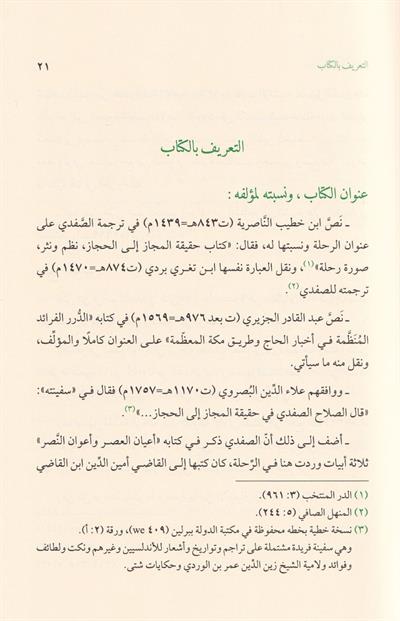 التعريف بالكتاب
٢١
التعريف بالكتاب
عنوان الكتاب ، ونسبته لمؤلفه :
ـ نَصَّ ابن خطيب النَّاصرية (ت٨٤٣هـ=١٤٣٩م) في ترجمة الصَّفدي على
عنوان الرحلة ونسبتها له، فقال: «كتاب حقيقة المجاز إلى الحجاز، نظم ونثر،
صورة رحلة»(١)، ونقل العبارة نفسها ابـن تغـري بردي (ت٨٧٤هـ=١٤٧٠م) في
ترجمته للصفدي(٢).
ـ نَصَّ عبد القادر الجزيري (ت بعد ٩٧٦هـ=١٥٦٩م) في كتابه «الدُّرر الفرائد
المُنَظَّمة في أخبار الحاج وطريـق مكة المعظّمة» علـى العنوان كاملًا والمؤلِّف،
ونقل منه ما سيأتي.
ـ ووافقهم علاء الدِّين البُصروي (ت١١٧٠هـ=١٧٥٧م) فقال فـي «سفينته»:
«قال الصلاح الصفدي في حقيقة المجاز إلى الحجاز...»(٣).
ـ أضف إلـى ذلك أنّ الصفدي ذكـر في كتابه «أعيان العصـر وأعوان النَّصر»
ثلاثة أبيات وردت هنا فـي الرِّحلة، كان كتبها إلـى القاضي أمين الدِّين ابن القاضي
(١) الدر المنتخب (٣: ٩٦١).
(٢) المنهل الصافي (٥: ٢٤٤).
(٣) نسخة خطية بخطه محفوظة في مكتبة الدولة ببرلين (we ٤٠٩)، ورقة (٢: أ).
وهي سفينة فريدة مشتملة على تراجم وتواريخ وأشعار للأندلسيين وغيرهم ونكت ولطائف
وفوائد ولامية الشيخ زين الدّين عمر بن الوردي وحكايات شتى.